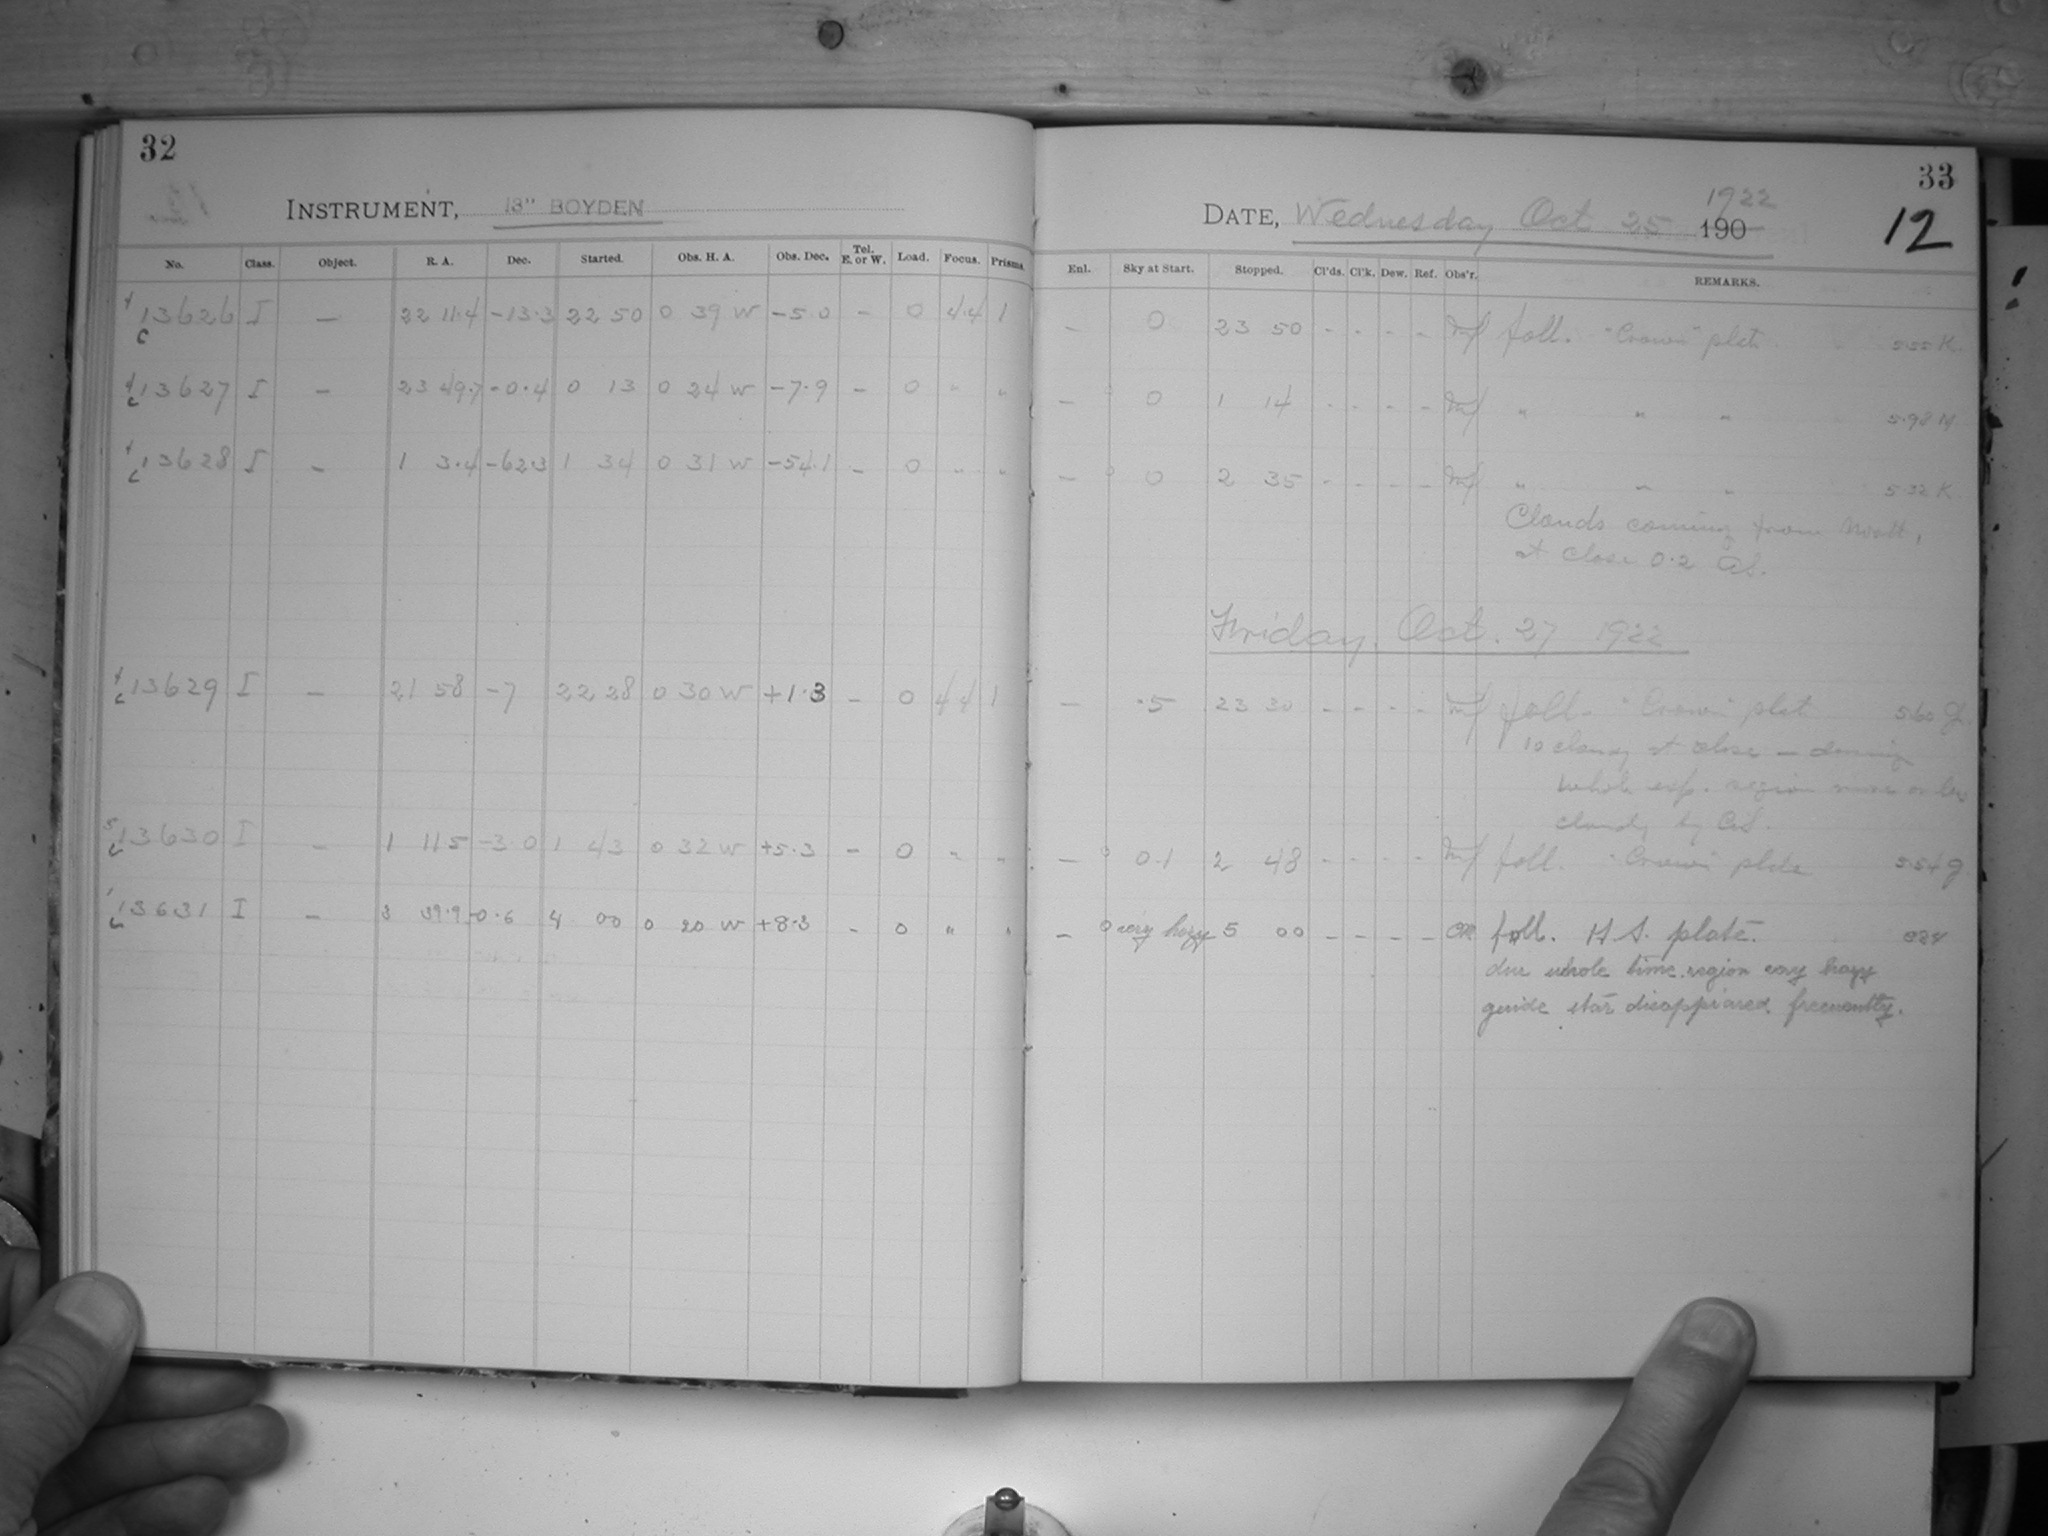 32
INSTRUMENT, 13" BOYDEN
No. Class. Object. R. A. Dec. Started. Obs. H. A. Obs. Dec. Tel. E. or W. Load. Focus. Prisms.
13626 I — 22 11.4 -13.3 22 50 0 39 W -5.0 - 0 44 1
c
c 13627 I — 23 49.7 -0.4 0 13 0 24 W -7.9 - 0 " "
c 13628 I — 1 3.4 -62.3 1 34 0 31 W -54.1 - 0 " "
c 13629 I — 21 58 -7 22 28 0 30 W +1.3 - 0 44 1
c 13630 I — 1 11.5 -3.0 1 43 0 32 W +5.3 - 0 " "
c 13631 I — 3 39.9 -0.6 4 00 0 20 W +8.3 - 0 " "
33
1922
DATE, Wednesday Oct 25 190
12
Enl. Sky at Start. Stopped. Cl'ds. Cl'k. Dew. Ref. Obs'r. REMARKS.
- 0 23 50 - - - - foll. "Crown" plate
- 0 1 14 - - - - " " " 5.98
- 0 2 35 - - - - " " " 5.32 K
Clouds coming from North,
at close 0.2 A.S.
Friday. Oct. 27 1922
- .5 23 30 - - - - foll. "Crown" plate 5.60
10 cloudy at close — during
whole exp. region more or less
cloudy by A.S.
- 0.1 2 48 - - - - foll. "Crown" plate 5.54 g
- 0 very hazy 5 00 - - - - foll. H S. plate.
due whole time region very hazy
guide star disappeared frecuently.